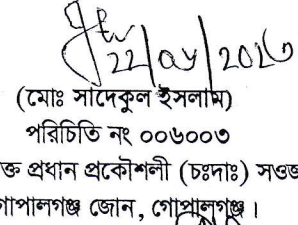 22/04/2026
(মোঃ সাদেকুল ইসলাম)
পরিচিতি নং ০০৬০০৩
প্রধান প্রকৌশলী (চঃদাঃ) সওজ
গোপালগঞ্জ জোন, গোপালগঞ্জ।